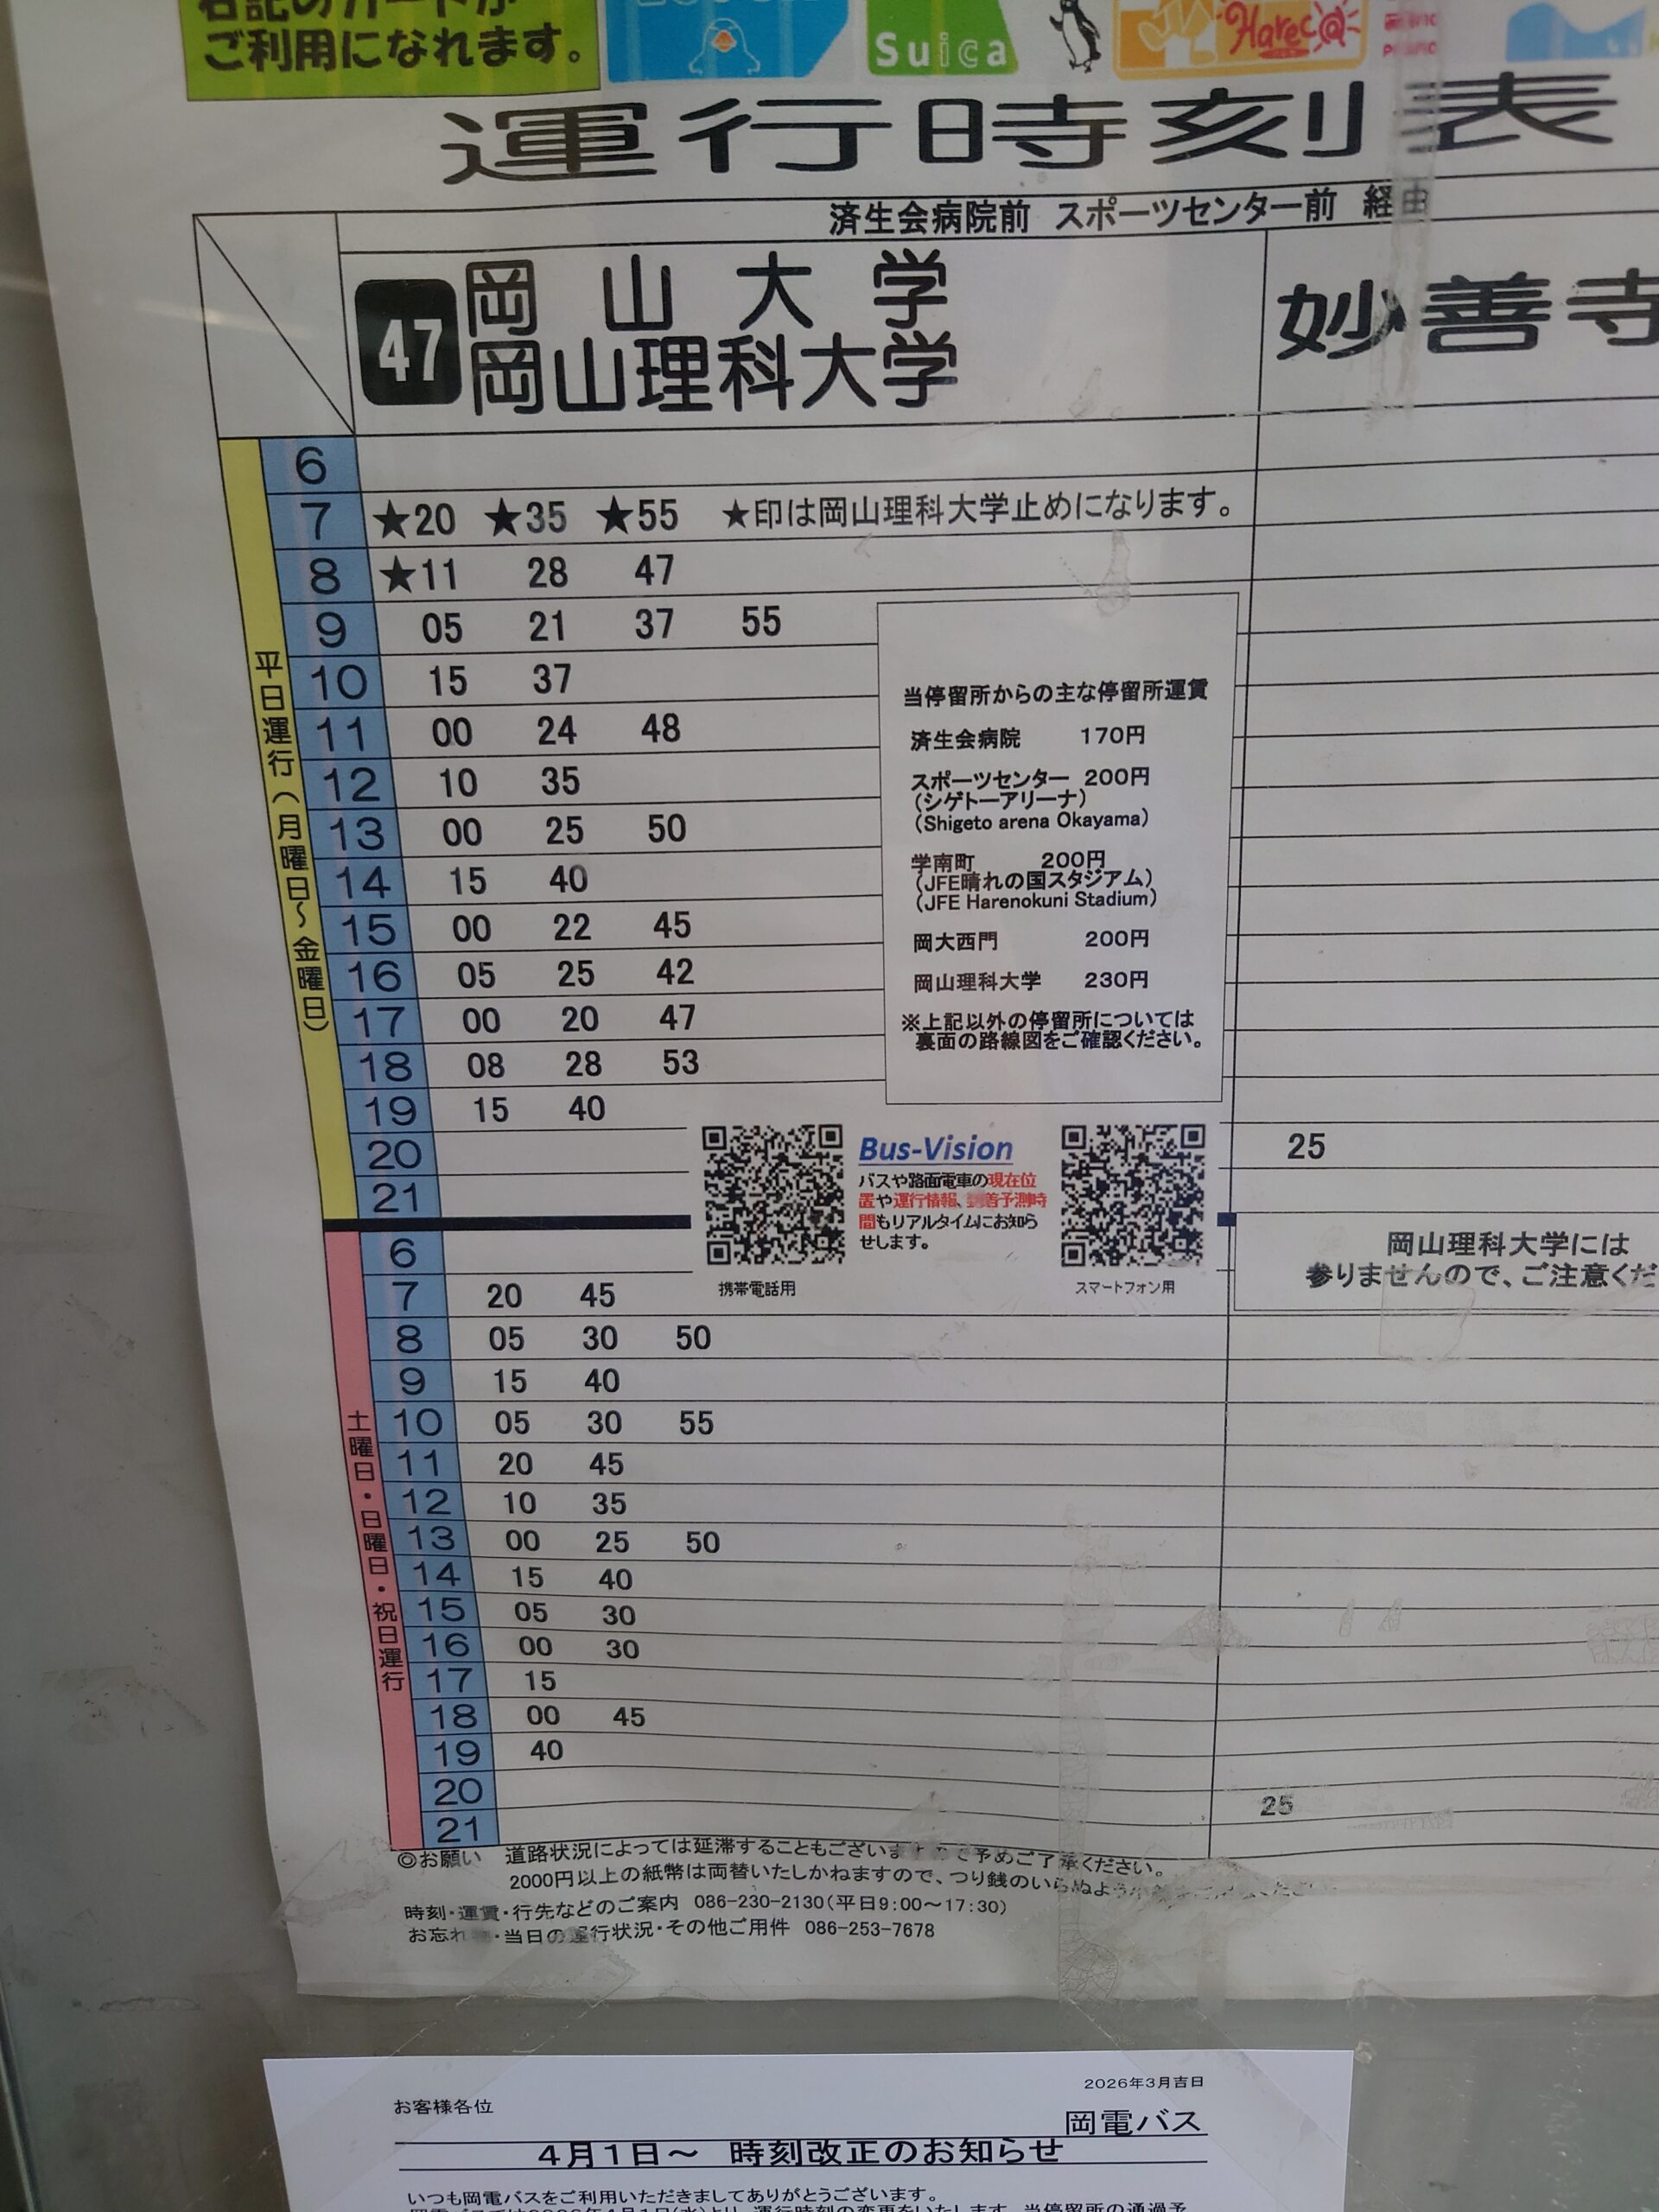 ご利用になれます。
Suica
Hareca
運行時刻表
済生会病院前 スポーツセンター前 経由
47 岡山大学
岡山理科大学
妙善寺
平日運行(月曜日～金曜日)
6
7 ★20 ★35 ★55 ★印は岡山理科大学止めになります。
8 ★11 28 47
9 05 21 37 55
10 15 37
11 00 24 48
12 10 35
13 00 25 50
14 15 40
15 00 22 45
16 05 25 42
17 00 20 47
18 08 28 53
19 15 40
20 25
21
当停留所からの主な停留所運賃
済生会病院 170円
スポーツセンター 200円
(シゲトーアリーナ)
(Shigeto arena Okayama)
学南町 200円
(JFE晴れの国スタジアム)
(JFE Harenokuni Stadium)
岡大西門 200円
岡山理科大学 230円
※上記以外の停留所については
裏面の路線図をご確認ください。
Bus-Vision
バスや路面電車の現在位
置や運行情報、着予測時
間もリアルタイムにお知ら
せします。
携帯電話用
スマートフォン用
岡山理科大学には
参りませんので、ご注意くだ
土曜日・日曜日・祝日運行
6
7 20 45
8 05 30 50
9 15 40
10 05 30 55
11 20 45
12 10 35
13 00 25 50
14 15 40
15 05 30
16 00 30
17 15
18 00 45
19 40
20 25
21
◎お願い 道路状況によっては延滞することもございま で予めご了承ください。
2000円以上の紙幣は両替いたしかねますので、つり銭のいらぬよう
時刻・運賃・行先などのご案内 086-230-2130(平日9:00～17:30)
お忘れ ・当日の運行状況・その他ご用件 086-253-7678
2026年3月吉日
お客様各位
岡電バス
4月1日～ 時刻改正のお知らせ
いつも岡電バスをご利用いただきましてありがとうございます。